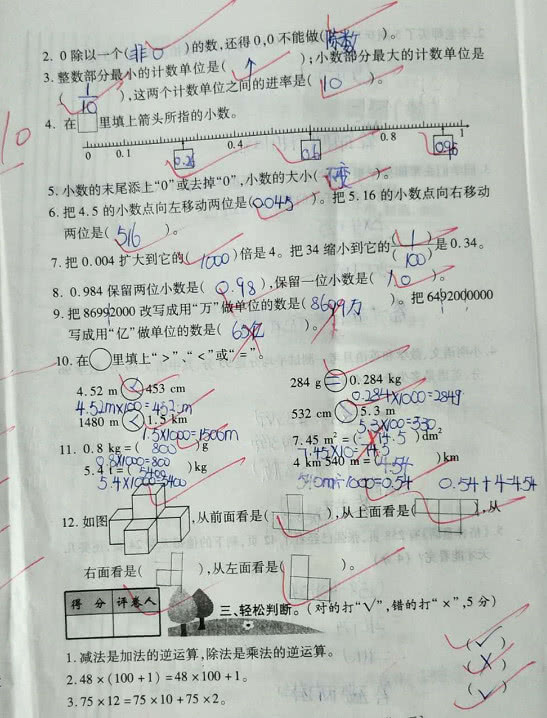 2. 0除以一个(非0)的数,还得0,0不能做(除数)。
3. 整数部分最小的计数单位是(个);小数部分最大的计数单位是
(1/10),这两个计数单位之间的进率是(10)。
10
4. 在□里填上箭头所指的小数。
0 0.1 0.4 0.8 1
0.26 0.6 0.96
5. 小数的末尾添上“0”或去掉“0”,小数的大小(不变)。
6. 把4.5的小数点向左移动两位是(0.045)。把5.16的小数点向右移动
两位是(516)。
7. 把0.004扩大到它的(1000)倍是4。把34缩小到它的(1/100)是0.34。
8. 0.984保留两位小数是(0.98),保留一位小数是(1.0)。
9. 把86992000改写成用“万”做单位的数是(8699万)。把6492000000
写成用“亿”做单位的数是(65亿)。
10. 在○里填上“>”、“<”或“=”。
4.52 m < 453 cm 284 g = 0.284 kg
4.52m×100=452cm 0.284×1000=284g
1480 m < 1.5 km 532 cm 5.3 m
1.5×1000=1500m 5.3×100=530
11. 0.8 kg=(800)g 7.45 m²=(14.5)dm²
0.8×1000=800 7.45×10=14.5
5.4 t=(5400)kg 4 km 540 m=(4.54)km
5.4×1000=5400 540m÷1000=0.54 0.54+4=4.54
12. 如图 ,从前面看是( ),从上面看是( ),从
右面看是( ),从左面看是( )。
得 分 评卷人
三、轻松判断。(对的打“√”,错的打“×”,5分)
1. 减法是加法的逆运算,除法是乘法的逆运算。 (√)
2. 48×(100+1)=48×100+1。 (×)
3. 75×12=75×10+75×2。 (√)